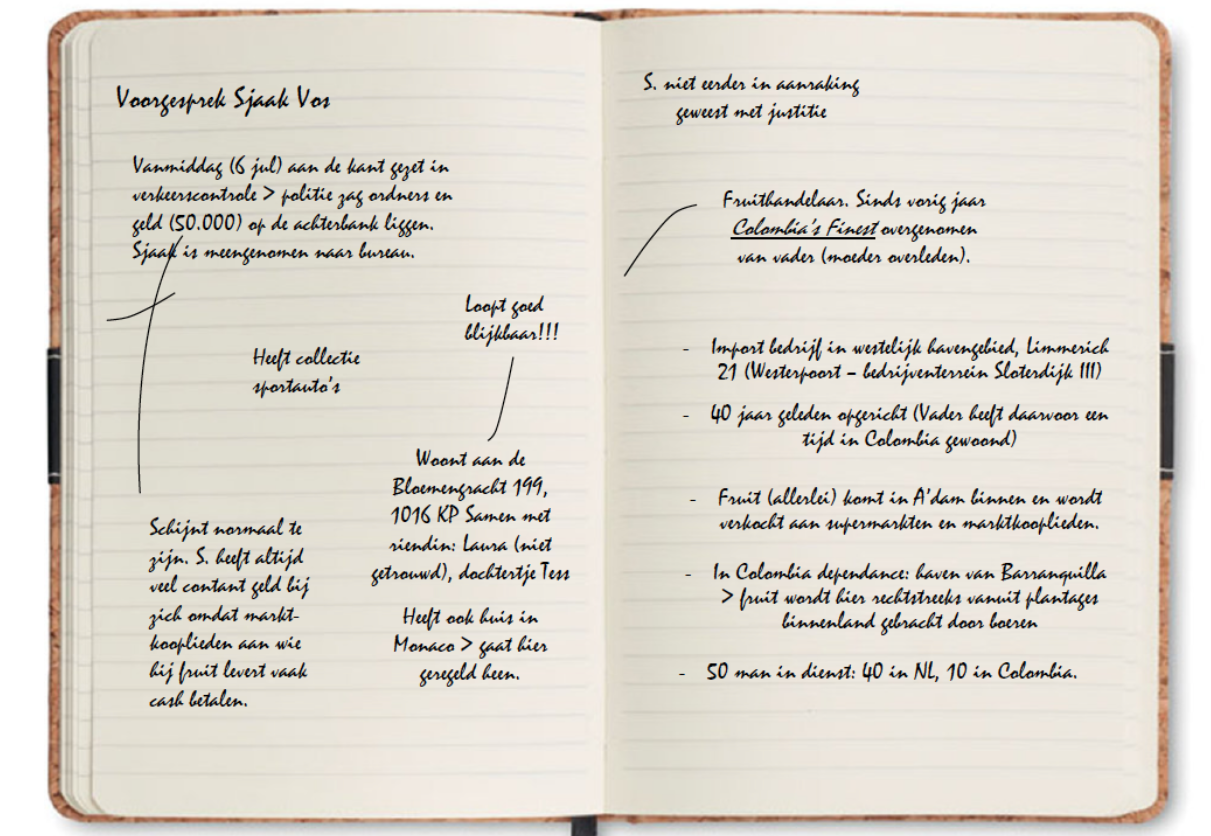 Voorgesprek Sjaak Vos
Vanmiddag (6 jul) aan de kant gezet in
verkeerscontrole > politie zag ordners en
geld (50.000) op de achterbank liggen.
Sjaak is meengenomen naar bureau.
Loopt goed
blijkbaar!!!
Heeft collectie
sportauto's
Woont aan de
Bloemengracht 199,
1016 KP Samen met
riendin: Laura (niet
getrouwd), dochtertje Tess
Heeft ook huis in
Monaco > gaat hier
geregeld heen.
Schijnt normaal te
zijn. S. heeft altijd
veel contant geld bij
zich omdat markt-
kooplieden aan wie
hij fruit levert vaak
cash betalen.
S. niet eerder in aanraking
geweest met justitie
Fruithandelaar. Sinds vorig jaar
Colombia's Finest overgenomen
van vader (moeder overleden).
- Import bedrijf in westelijk havengebied, Limmerich
21 (Westerpoort – bedrijventerrein Sloterdijk III)
- 40 jaar geleden opgericht (Vader heeft daarvoor een
tijd in Colombia gewoond)
- Fruit (allerlei) komt in A'dam binnen en wordt
verkocht aan supermarkten en marktkooplieden.
- In Colombia dependance: haven van Barranquilla
> fruit wordt hier rechtstreeks vanuit plantages
binnenland gebracht door boeren
- 50 man in dienst: 40 in NL, 10 in Colombia.